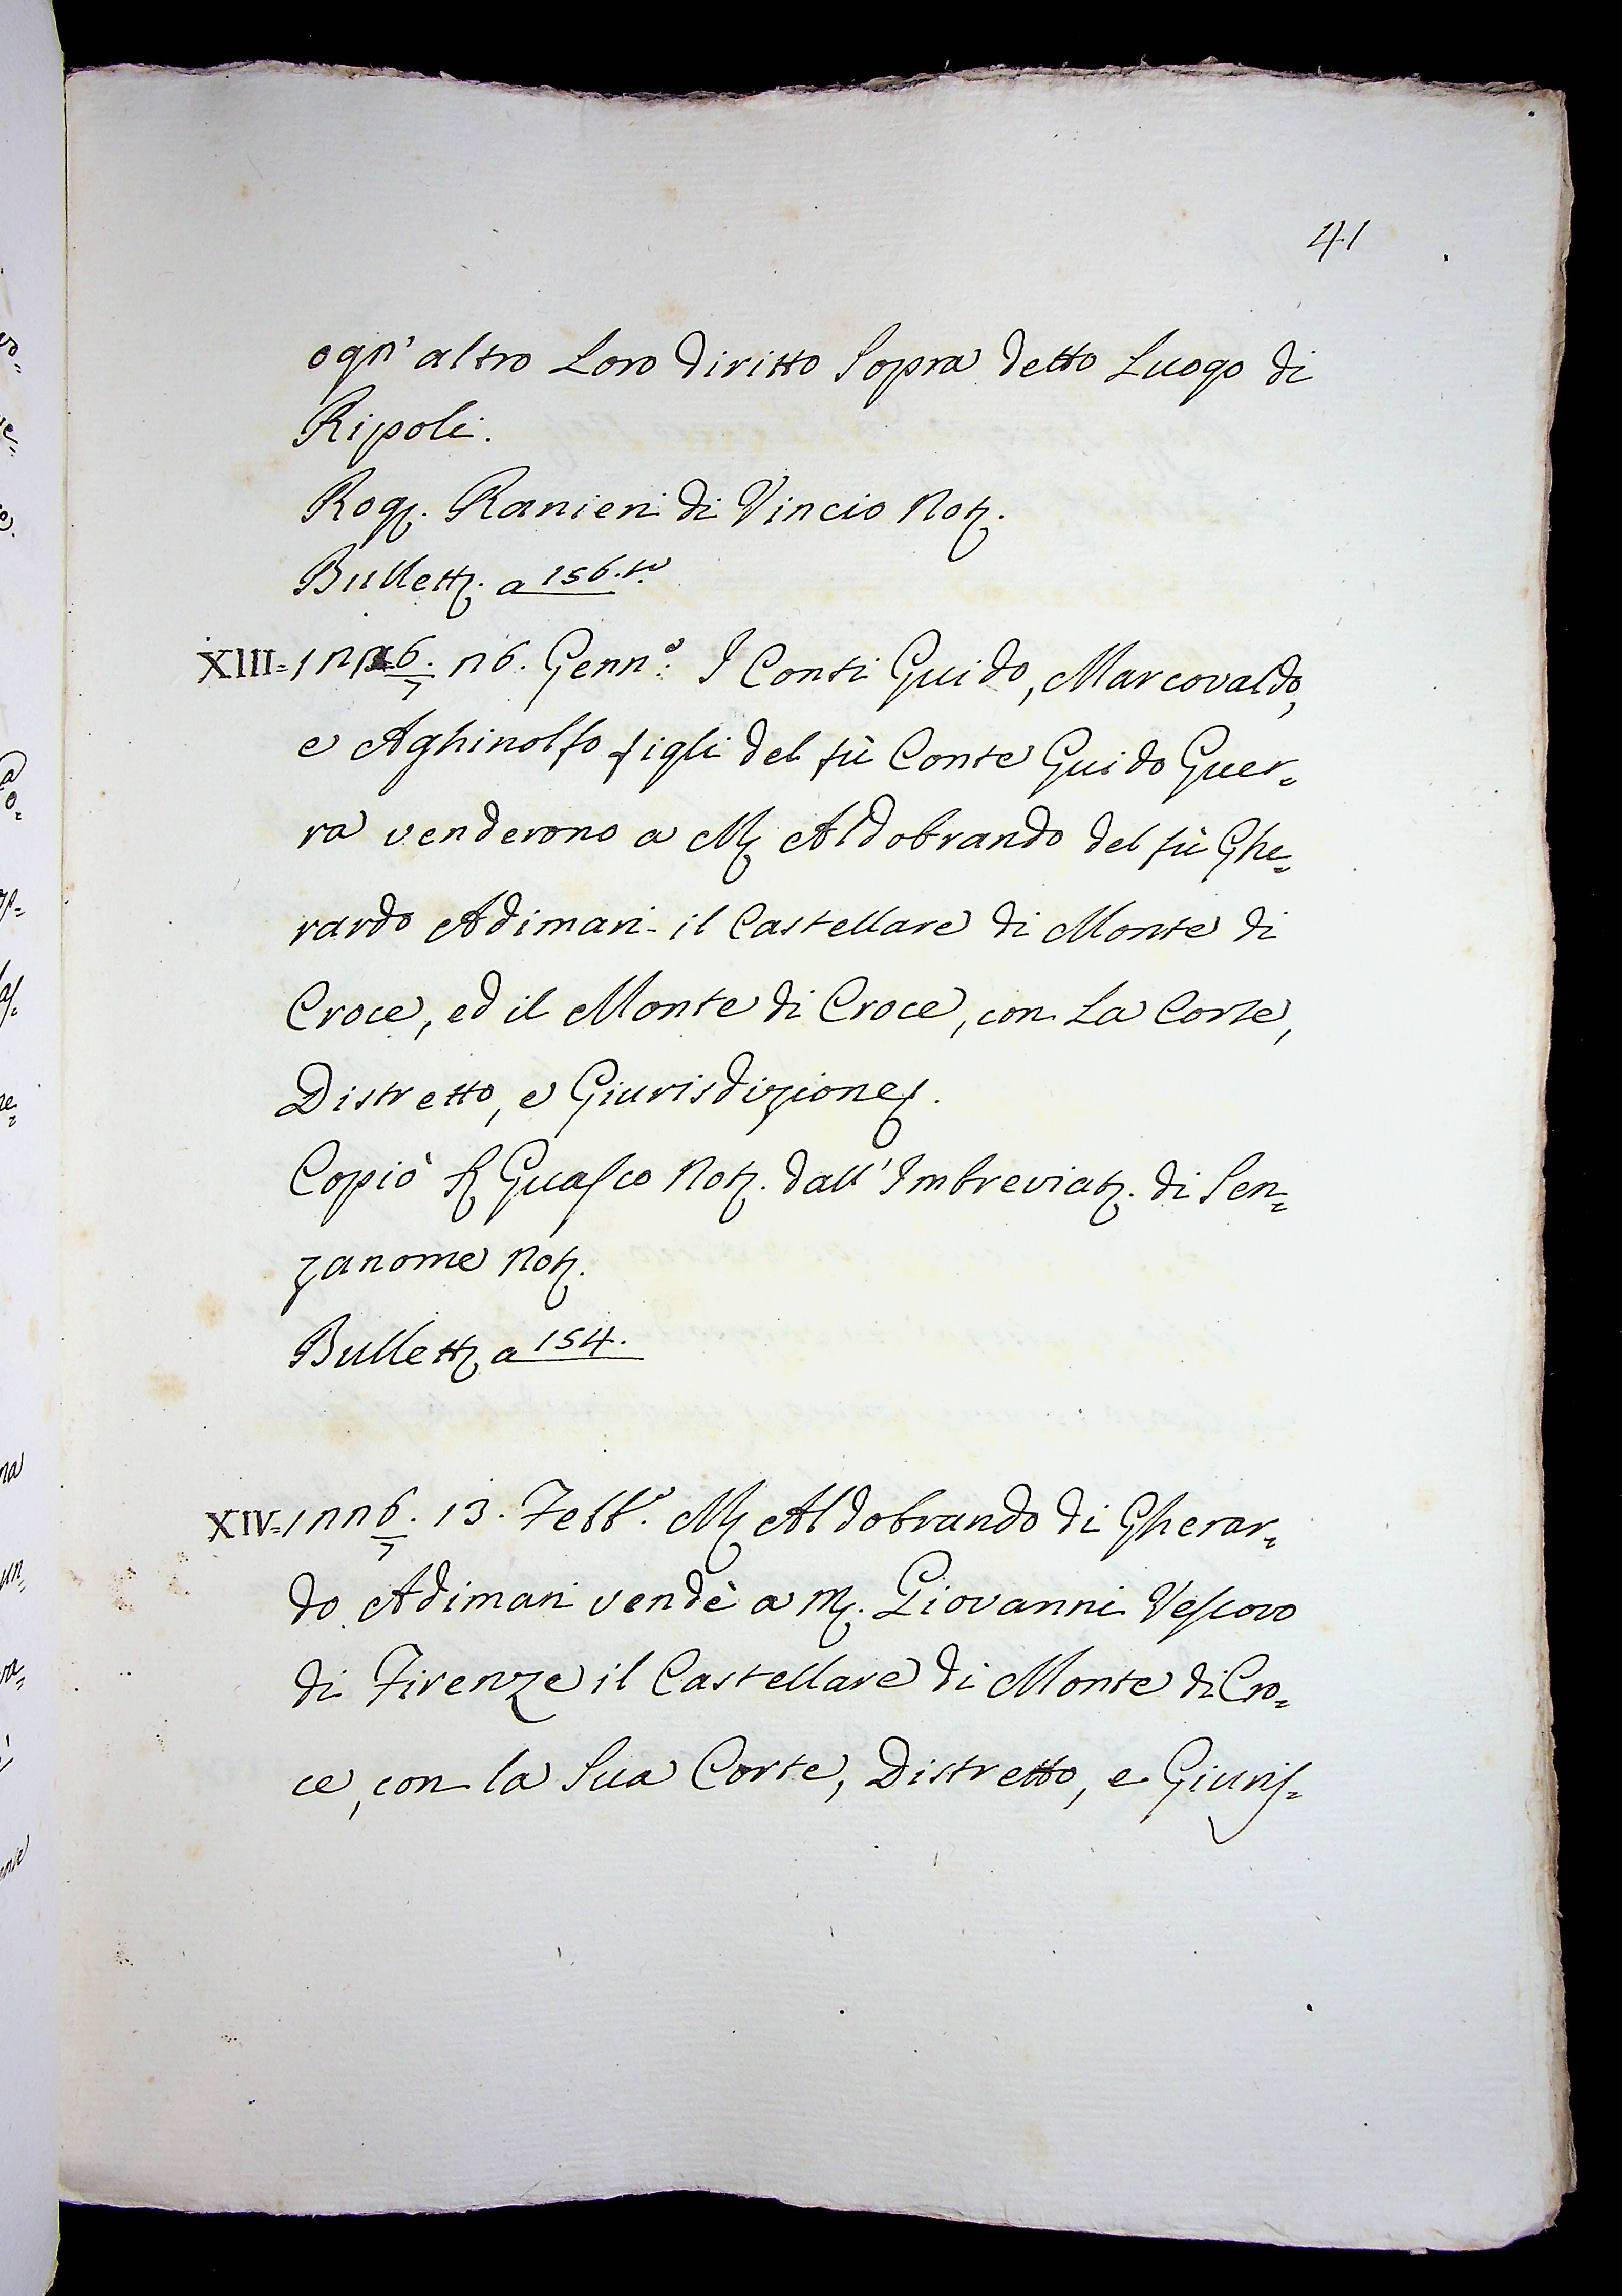 41
ogn' altro Loro diritto Sopra detto Luogo di
Ripoli.
Rog. Ranieri di Vincio Not.
Bullett. a 156. t.º
XIII = 1226/7. 26. Genn.º: I Conti Guido, Marcovaldo,
e Aghinolfo figli del fù Conte Guido Guer=
ra venderono a M. Aldobrando del fù Ghe=
rardo Adimari il Castellare di Monte di
Croce, ed il Monte di Croce, con La Corte,
Distretto, e Giurisdizione.
Copiò S. Guasco Not. dall' Imbreviat. di Sen=
zanome Not.
Bullett. a 154.
XIV = 1226/7. 13. Febb.º M. Aldobrando di Gherar=
do Adimari vendè a M. Giovanni Vescovo
di Firenze il Castellare di Monte di Cro=
ce, con la Sua Corte, Distretto, e Giuris=